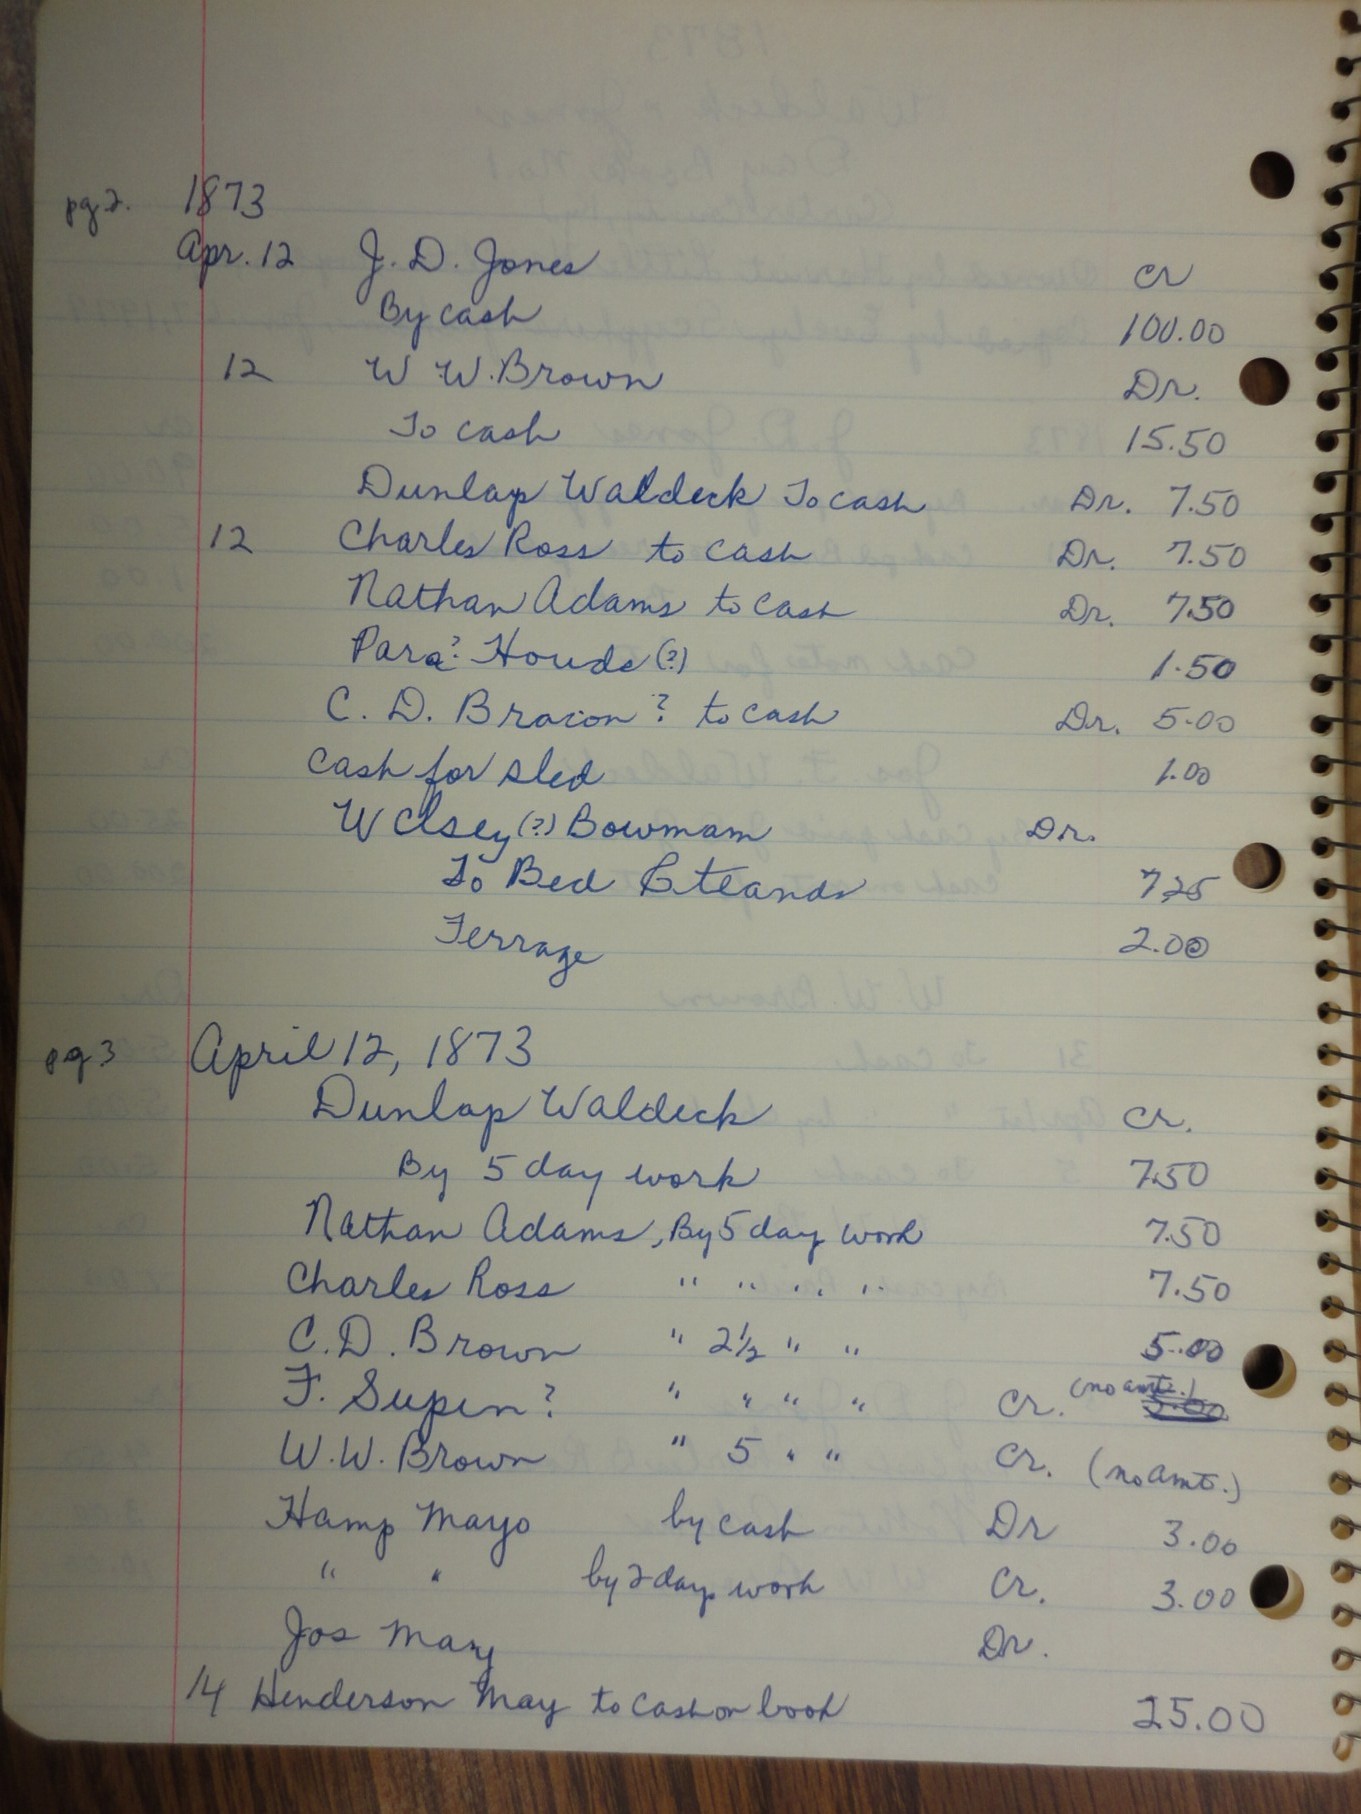 pg 2. 1873
Apr. 12 J. D. Jones Cr
By cash 100.00
12 W W. Brown Dr.
To cash 15.50
Dunlap Waldeck To cash Dr. 7.50
12 Charles Ross to cash Dr. 7.50
Nathan Adams to cash Dr. 7.50
Para? Houde (?) 1.50
C. D. Bracon? to cash Dr. 5.00
Cash for sled 1.00
W Clsey (?) Bowmam Dr.
To Bed 7.25
Ferrage 2.00
pg 3 April 12, 1873
Dunlap Waldeck Cr.
By 5 day work 7.50
Nathan Adams, By 5 day work 7.50
Charles Ross " " " " 7.50
C. D. Brown " 2 1/2 " " 5.00
F. Supin? " " " " Cr. (no amt.) 5.00
W. W. Brown " 5 " " Cr. (no amt.)
Hamp Mayo by cash Dr 3.00
" " by 2 day work Cr. 3.00
Jos May Dr.
14 Henderson May to cash on book 25.00